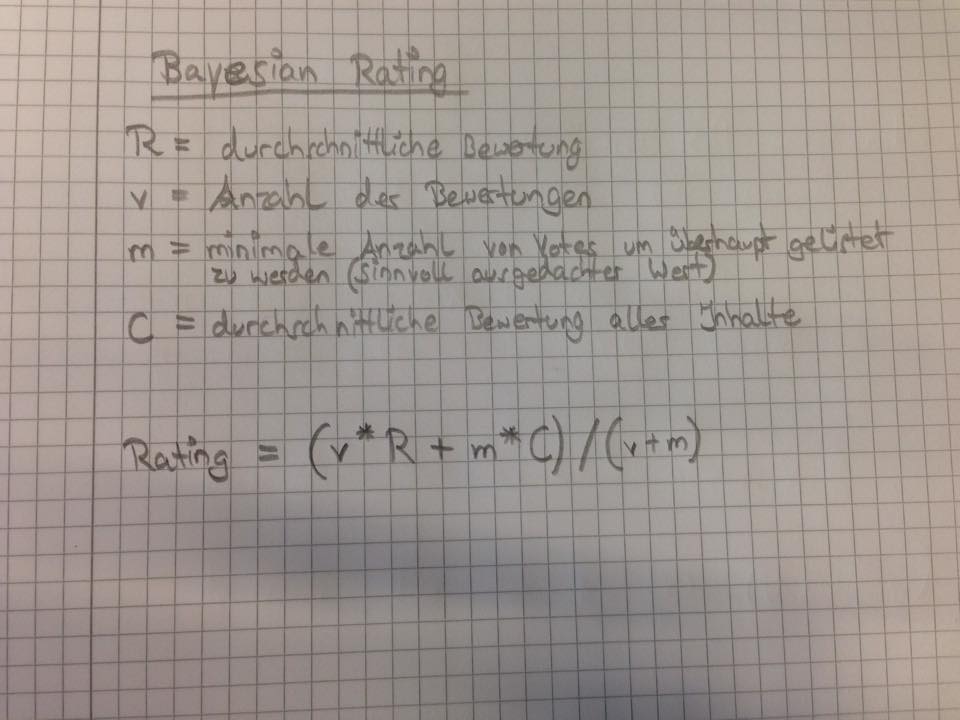 Bayesian Rating
R = durchschnittliche Bewertung
v = Anzahl der Bewertungen
m = minimale Anzahl von Votes um überhaupt gelistet
zu werden (sinnvoll ausgedachter Wert)
C = durchschnittliche Bewertung aller Inhalte
Rating = (v * R + m * C) / (v + m)